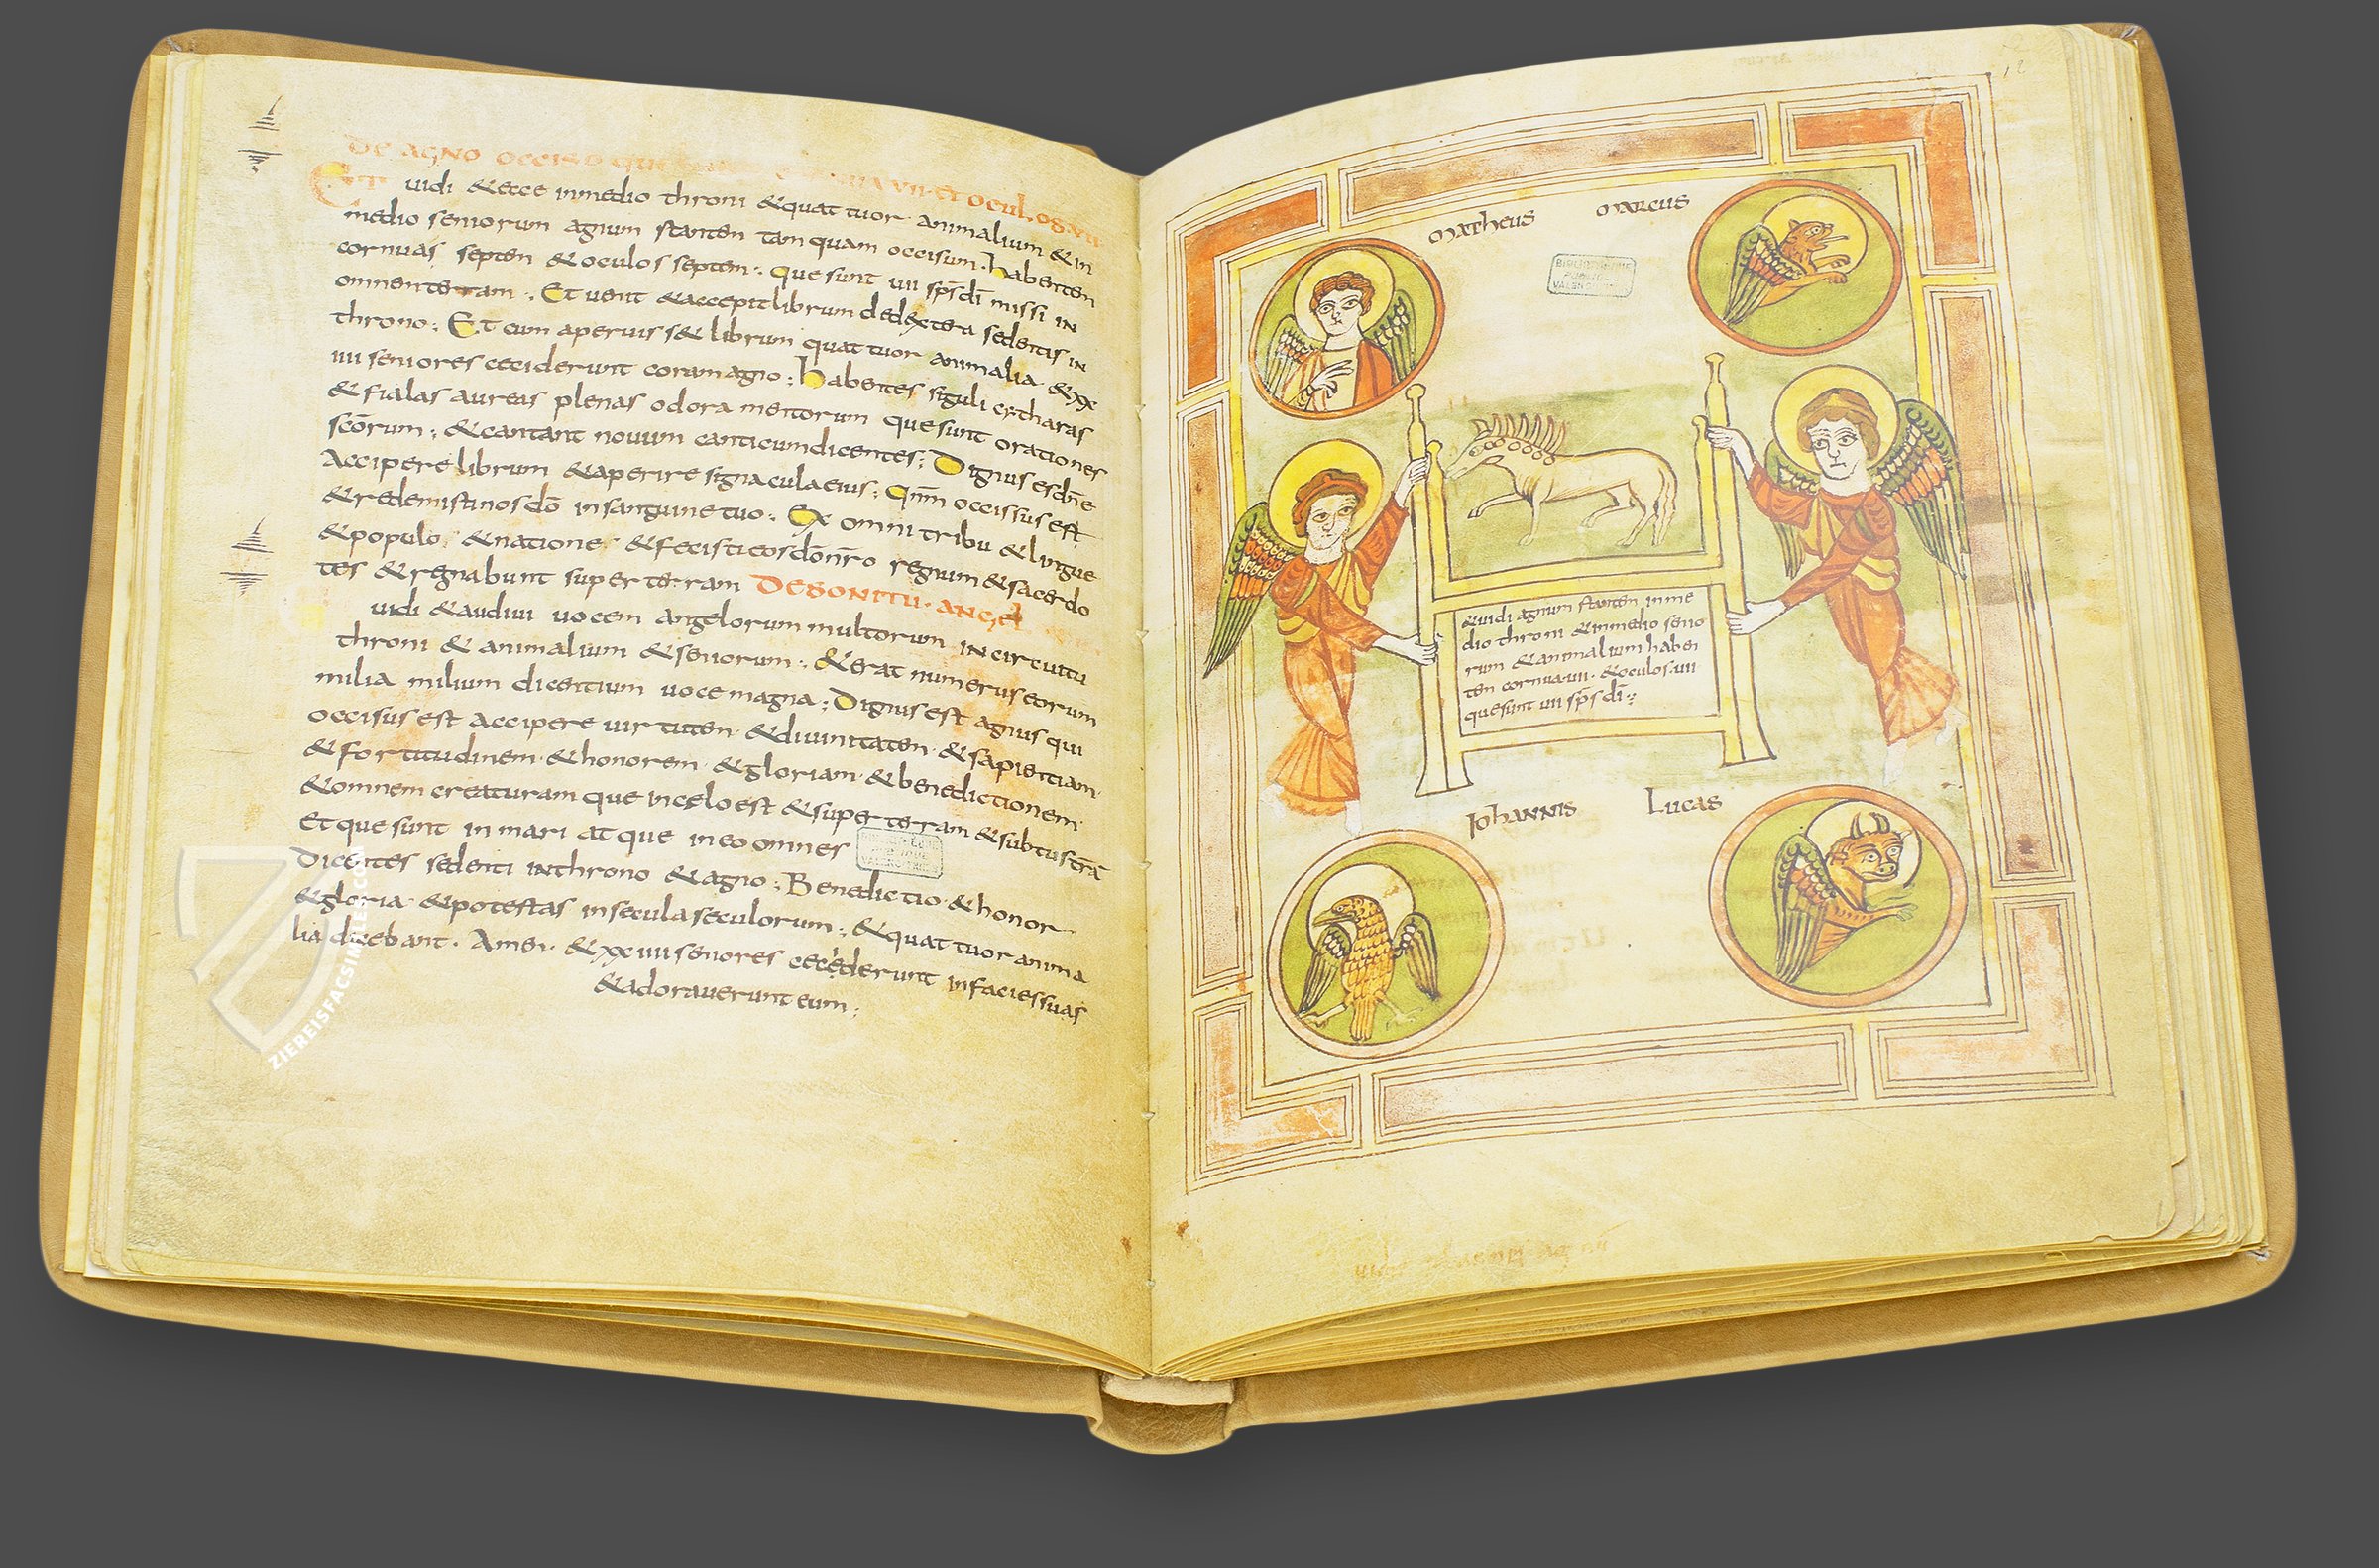 DE AGNO OCCISO QUI VII ET OCUL
ET uidi & ecce inmedio throni & quattuor animalium & in
medio seniorum agnum stanten tamquam occisum. habenten
cornuas septen & oculos septen :. que sunt uii sp̄s dī missi in
omnen terram :. Et uenit & accepit librum dedextera sedentis in
throno :. Et cum aperuisset librum quattuor animalia & xx
iiii seniores ceciderunt coram agno :. habentes siguli cytharas
& fialas aureas plenas odoramentorum que sunt orationes
scōrum :. & cantant nouum canticum dicentes :. Dignus es dn̄e
Accipere librum & aperire signacula eius :. Qnm̄ occissus est
& redemisti nos dō in sanguine tuo :. Ex omni tribu & lingue
& populo & natione & fecisti eos dō nr̄o regnum & sacerdo
tes & regnabunt super terram DE SONITU · ANGEL
uidi & audiui uocem angelorum multorum in circuitu
throni & animalium & seniorum :. & erat numerus eorum
milia milium dicentium uoce magna :. Dignus est agnus qui
occisus est accipere uirtuten · & diuinitaten · & sapientiam·
& fortitudinem · & honorem · & gloriam · & benedictionem·
& omnem creaturam que in celo est & super terram & subtus trā
Et que sunt in mari atque in eo omnes
Dicentes sedenti in throno & agno :. Benedictio & honor
& gloria & potestas in secula seculorum :. & quattuor anima
lia dicebant · Amen · & xxiiii seniores ceciderunt in facies suas
& adorauerunt eum :.
ZIEREISFACSIMILE.COM
12
MATHEUS MARCUS
BIBLIOTHEQUE
PUBLIQUE
VALENCIENNES
& uidi agnum stanten inme
dio throni & inmedio senio
rum & animalium haben
ten cornua·uii· & oculos·uii·
que sunt uii sp̄s dī :.
IOHANNIS LUCAS